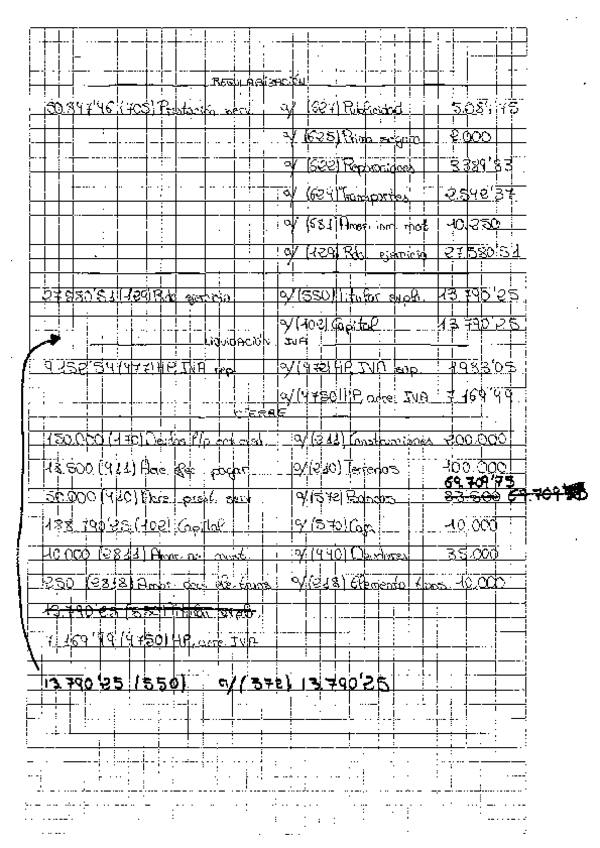 REGULARIZACIÓN
50.847'46 (705) Prestación serv. a/ (627) Publicidad 5.08
a/ (625) Prima seguro 2.000
a/ (622) Reparaciones 3.389'83
a/ (624) Transportes 2.542'37
a/ (681) Amor. inm. mat 10.250
a/ (129) Rdo. ejercicio 27.580'51
27.580'51 (129) Rdo ejercicio a/ (550) Titular explt. 13.790'25
a/ (102) Capital 13.790'25
LIQUIDACIÓN IVA
9.152'54 (477) HP, IVA rep. a/ (472) HP, IVA sop. 1983'05
a/ (4750) HP, acre. IVA 7.169'49
CIERRE
150.000 (170) Deudas l/p ent. cred. a/ (211) Construcciones 200.000
a/ (210) Terrenos 100.000
69.709'75
50.000 (410) Acre. prest. serv a/ (572) Bancos 83.500 69.709'75
188.790'25 (102) Capital a/ (570) Caja 10.000
10.000 (2811) Amor. a/ (440) Deudores 35.000
250 (2818) a/ (218) Elemento trans. 10.000
13.790'25 (550) Titular explt.
7.169'49 (4750) HP, acre IVA
13.790'25 (550) a/ (572) 13.790'25